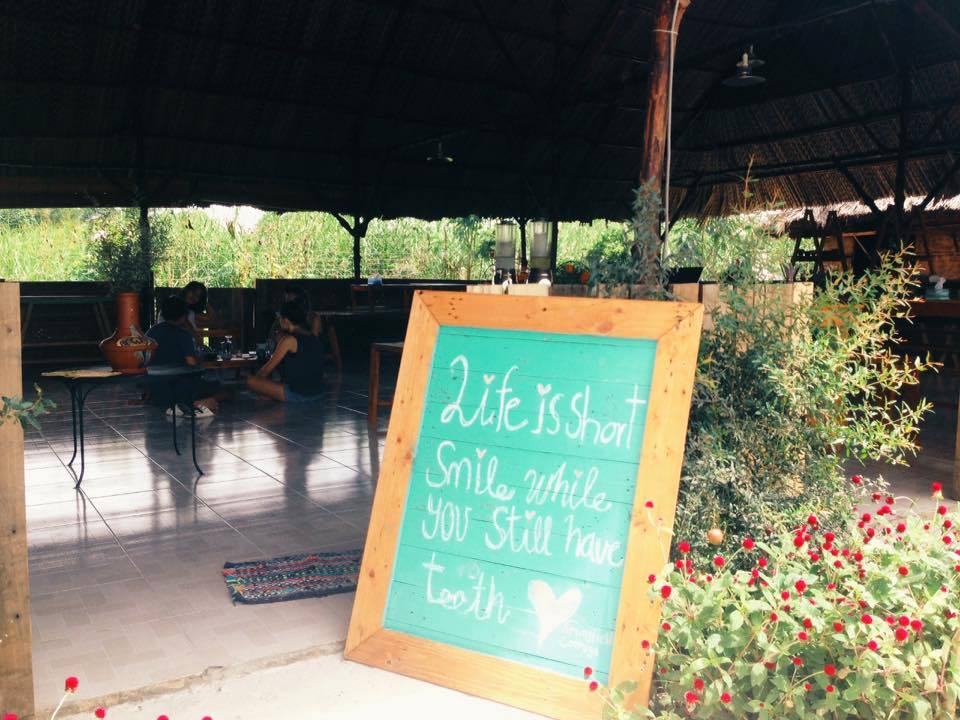 Life is short
Smile while
you still have
tooth